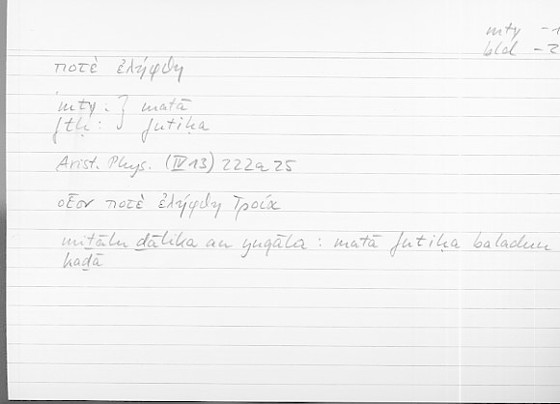 mty - 1
bld - 2
ποτὲ ἐλήφθη
mty : } matā
ftḥ : } futiḥa
Arist. Phys. (IV 13) 222a25
οἷον ποτὲ ἐλήφθη Τροία
miṯālu ḏālika an yuqāla : matā futiḥa baladun
kaḏā